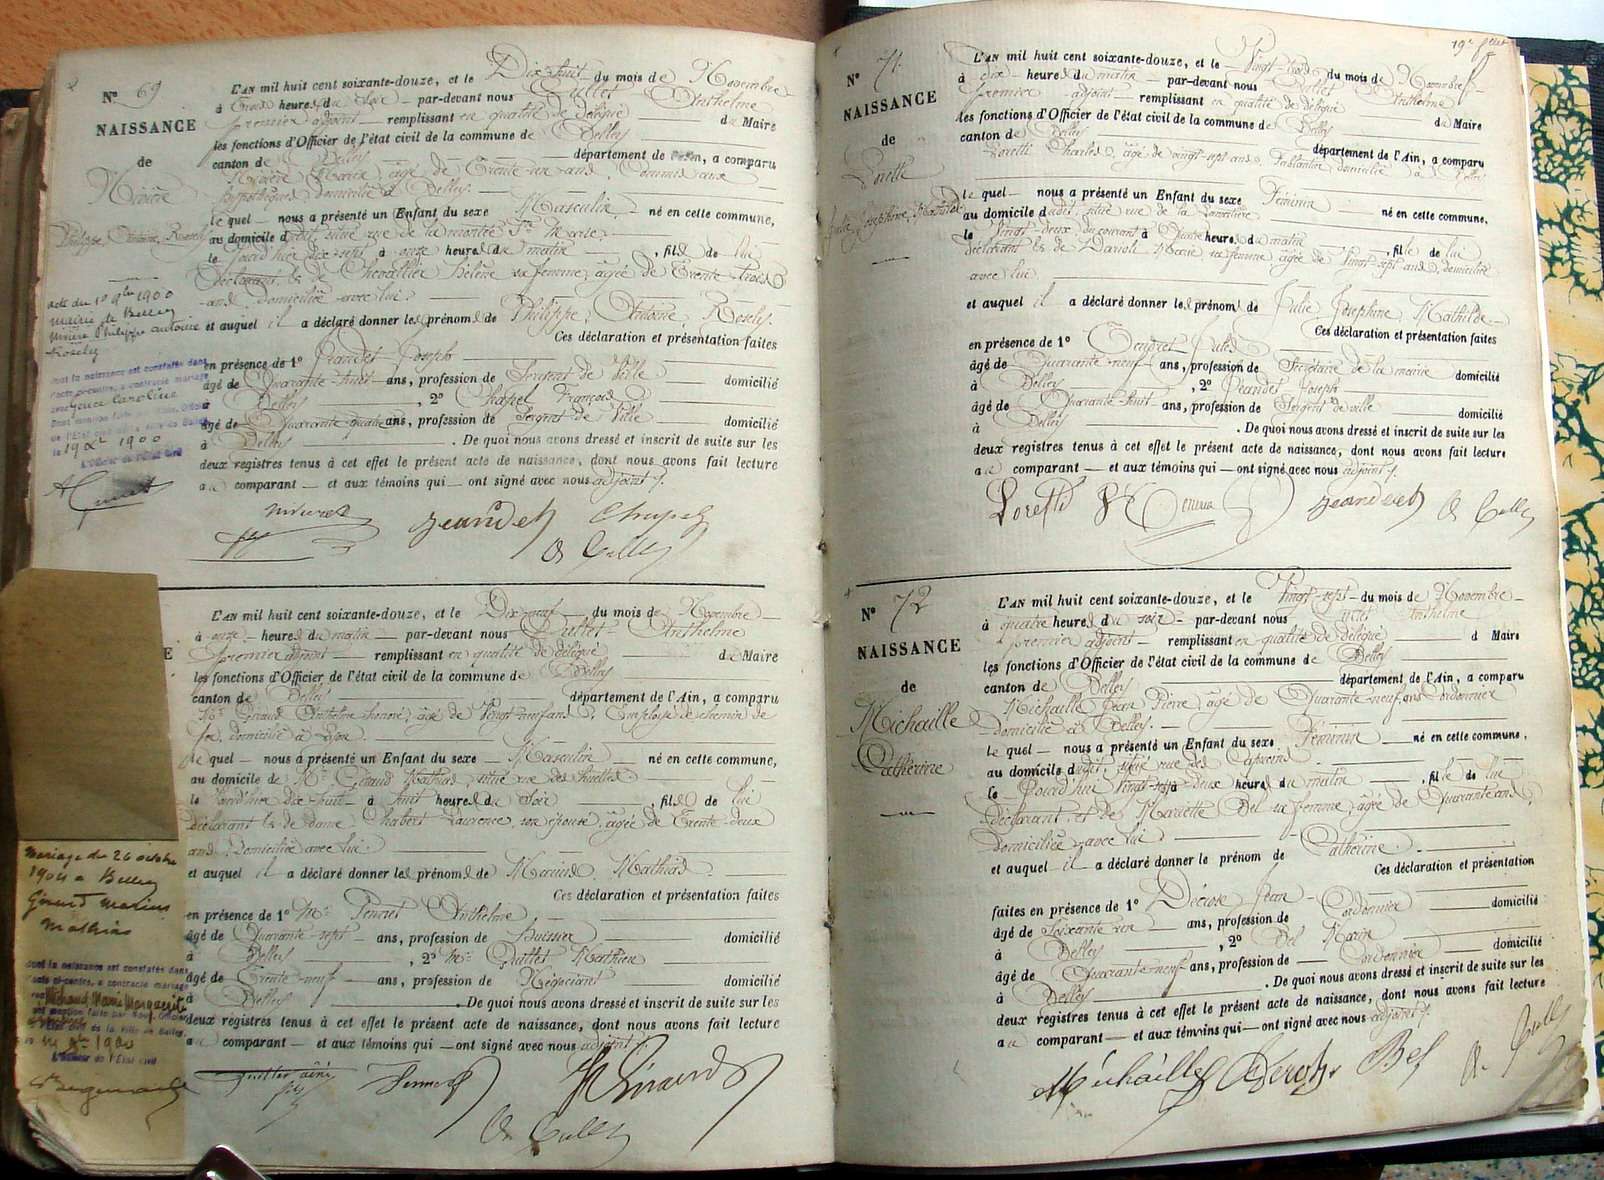 Nº 69
NAISSANCE
de
Mivière
Philippe Antoine Rosely
acte du 1er 9bre 1900
mairie de Belley
Mivière Philippe Antoine
Rosely
dont la naissance est constatée dans
l'acte ci-contre, a contracté mariage
avec Caroline
1900
L'Officier de l'Etat Civil
L'AN mil huit cent soixante-douze, et le Dix-huit du mois de Novembre
à trois heures du soir par-devant nous Cullet Anthelme
premier adjoint remplissant en qualité de délégué du Maire
les fonctions d'Officier de l'état civil de la commune de Belley
canton de Belley département de l'Ain, a comparu
Mivière Marie, âgé de Trente-six ans, Commis aux
hypothèques domicilié à Belley.
le quel nous a présenté un Enfant du sexe Masculin né en cette commune,
au domicile dudit, situé rue de la montée Ste Marie,
le jourd'hier dix-sept, à onze heures du matin, fils de lui
Déclarant, & de Chevallier Hélène sa femme, âgée de Trente trois
ans, domiciliée avec lui.
et auquel il a déclaré donner les prénoms de Philippe, Antoine, Rosely.
Ces déclaration et présentation faites
en présence de 1º Jeandet Joseph
âgé de Quarante-huit ans, profession de Sergent de Ville domicilié
à Belley, 2º Chapel François
âgé de Quarante-quatre ans, profession de Sergent de Ville domicilié
à Belley. De quoi nous avons dressé et inscrit de suite sur les
deux registres tenus à cet effet le présent acte de naissance, dont nous avons fait lecture
au comparant et aux témoins qui ont signé avec nous adjoint.
Jeandet Chapel
A Cullet
E
Mariage du 26 octobre
1904 a Belley
Girard Marius
Mathias
dont la naissance est constatée dans
l'acte ci-contre, a contracté mariage
Marie Marguerite
L'Officier de l'Etat Civil
L'AN mil huit cent soixante-douze, et le Dix-neuf du mois de Novembre
à onze heures du matin par-devant nous Cullet Anthelme
premier adjoint remplissant en qualité de délégué du Maire
les fonctions d'Officier de l'état civil de la commune de Belley
canton de Belley département de l'Ain, a comparu
Mr Giraud Anthelme honoré, âgé de Vingt-neuf ans, Employé de chemin de
fer, domicilié à Lyon.
le quel nous a présenté un Enfant du sexe Masculin né en cette commune,
au domicile de Mr Giraud Mathias, situé rue des
le jourd'hier dix-huit à huit heures du Soir, fils de lui
déclarant & de dame Chabert Laurence, son épouse, âgée de Trente-deux
ans, Domiciliée avec lui.
et auquel il a déclaré donner les prénoms de Marius, Mathias.
Ces déclaration et présentation faites
en présence de 1º Mr Anthelme,
âgé de Quarante-sept ans, profession de Huissier domicilié
à Belley, 2º Mr Guttet Mathieu
âgé de Trente-neuf ans, profession de Négociant domicilié
à Belley. De quoi nous avons dressé et inscrit de suite sur les
deux registres tenus à cet effet le présent acte de naissance, dont nous avons fait lecture
au comparant et aux témoins qui ont signé avec nous adjoint.
A Cullet
Nº 71
NAISSANCE
de
Loretti
Julie Joséphine Mathilde
L'AN mil huit cent soixante-douze, et le Vingt-trois du mois de Novembre
à dix heures du matin par-devant nous Cullet Anthelme
premier adjoint remplissant en qualité de délégué du Maire
les fonctions d'Officier de l'état civil de la commune de Belley
canton de Belley département de l'Ain, a comparu
Loretti Charles, âgé de vingt-sept ans, Ferblantier domicilié à Belley
le quel nous a présenté un Enfant du sexe Féminin né en cette commune,
au domicile dudit, situé rue de la
le Vingt-deux du courant à Quatre heures du matin, fille de lui
déclarant & de Marie sa femme âgée de Vingt-sept ans, domiciliée
avec lui
et auquel il a déclaré donner les prénoms de Julie, Joséphine, Mathilde.
Ces déclaration et présentation faites
en présence de 1º Jules
âgé de Quarante-neuf ans, profession de Secrétaire de la mairie domicilié
à Belley, 2º Jeandet Joseph
âgé de Quarante-huit ans, profession de Sergent de ville domicilié
à Belley. De quoi nous avons dressé et inscrit de suite sur les
deux registres tenus à cet effet le présent acte de naissance, dont nous avons fait lecture
au comparant et aux témoins qui ont signé avec nous adjoint.
Loretti Jeandet A Cullet
Nº 72
NAISSANCE
de
Michaille
Catherine
L'AN mil huit cent soixante-douze, et le Vingt-sept du mois de Novembre
à quatre heures du soir par-devant nous Cullet Anthelme
premier adjoint remplissant en qualité de délégué d Maire
les fonctions d'Officier de l'état civil de la commune de Belley
canton de Belley département de l'Ain, a comparu
Michaille Jean Pierre, âgé de Quarante-neuf ans Cordonnier
domicilié à Belley.
le quel nous a présenté un Enfant du sexe Féminin né en cette commune,
au domicile dudit, situé rue des Capucins
le jourd'hui Vingt-sept à deux heures du matin, fille de lui
déclarant, et de Mariette Bel sa femme, âgée de Quarante ans,
domiciliée avec lui
et auquel il a déclaré donner le prénom de Catherine.
Ces déclaration et présentation
faites en présence de 1º Décroze Jean Cordonnier domicilié
âgé de Soixante ans, profession de
à Belley, 2º Bel Marin
âgé de Quarante-neuf ans, profession de Cordonnier domicilié
à Belley. De quoi nous avons dressé et inscrit de suite sur les
deux registres tenus à cet effet le présent acte de naissance, dont nous avons fait lecture
au comparant et aux témoins qui ont signé avec nous adjoint.
Michaille Bel A. Cullet